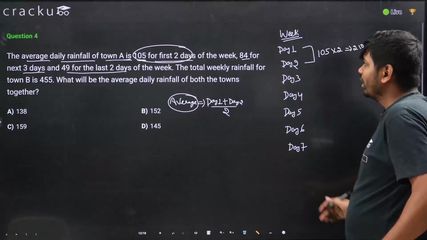 cracku
Live
Question 4
The average daily rainfall of town A is 105 for first 2 days of the week, 84 for
next 3 days and 49 for the last 2 days of the week. The total weekly rainfall for
town B is 455. What will be the average daily rainfall of both the towns
together?
A) 138
B) 152
C) 159
D) 145
Average ⇒ Day1 + Day2
2
Week
Day1
Day2
Day3
Day4
Day5
Day6
Day7
105×2 ⇒ 210